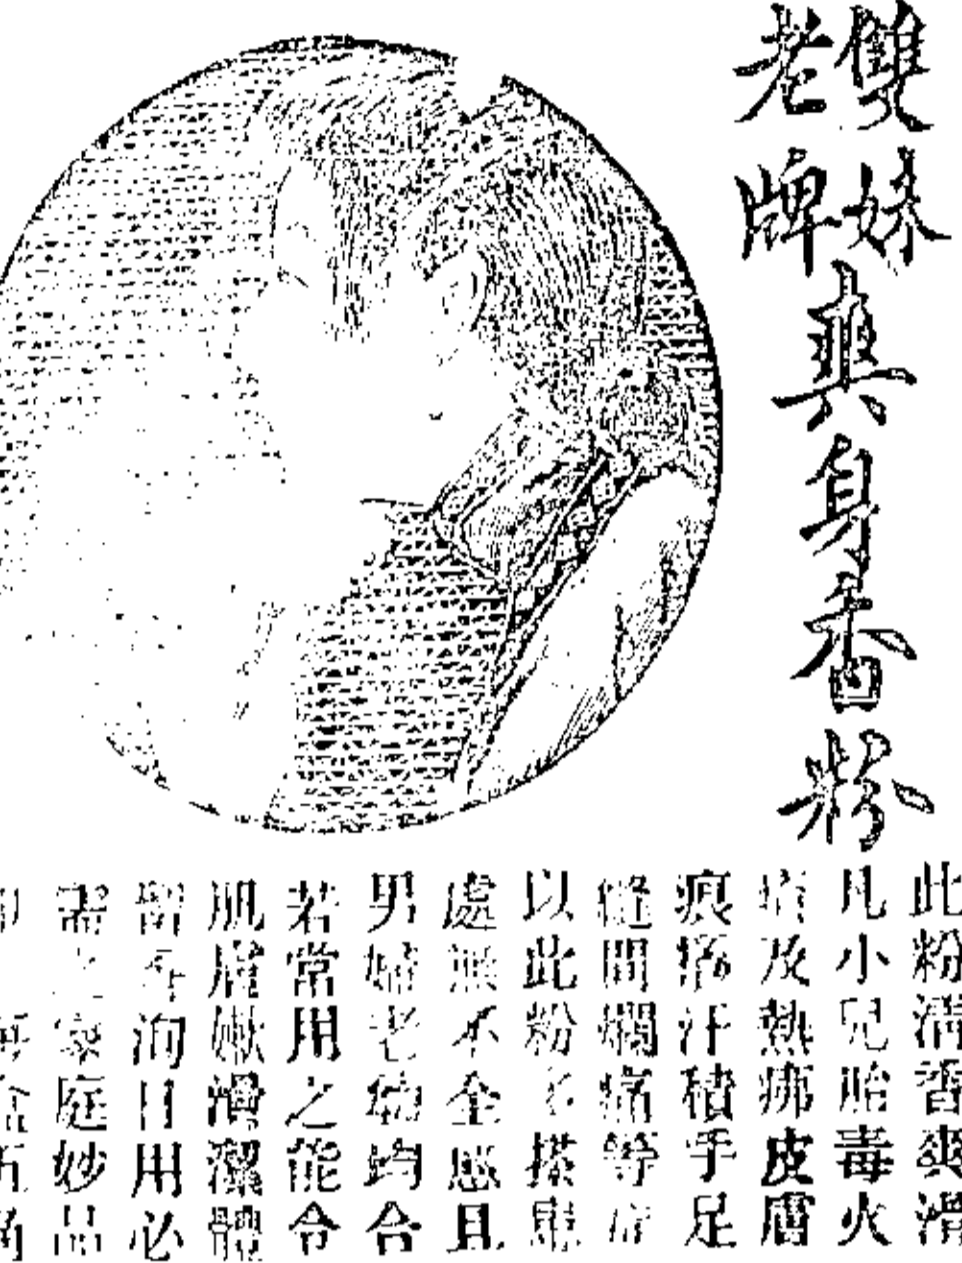 雙妹
老牌
爽身香粉
此粉清香爽滑
凡小兒胎毒火
及熱痱皮膚
痕癢汗積手足
縫間爛痛等
以此粉搽患
處無不全愈且
男婦老幼均合
若常用之能令
肌膚嫩滑潔體
留香洵日用必
需之家庭妙品
每盒五角